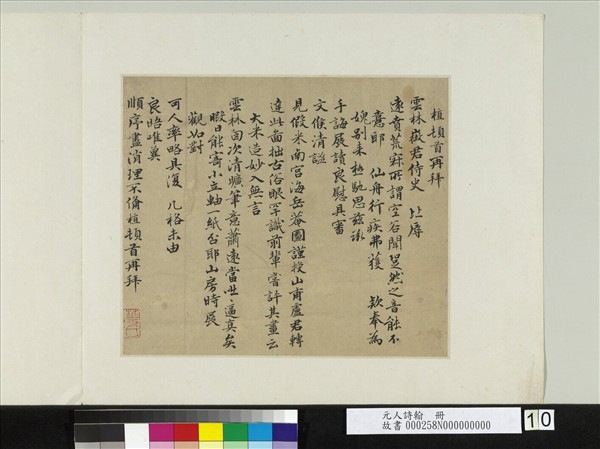 植頓首再拜
雲林徵君侍史 比辱
遠賁荒寂所謂空谷聞跫然之音能不
意耶 仙舟行疾弗獲 欵奉為
媿別來極馳思茲承
手誨展讀良慰具審
文候清謐
見假米南宮海岳菴圖謹投山甫盧君轉
達此畵拙古俗眼罕識前輩嘗評其畫云
大米造妙入無言
雲林匈次清曠筆意蕭遠當咄咄逼真矣
暇日能寄小立軸一紙台耶山房時展
觀如對
可人率略具復 凡格未由
良晤唯冀
順序盡消理不備植頓首再拜
元人詩翰 冊
故書 000258N000000000
10